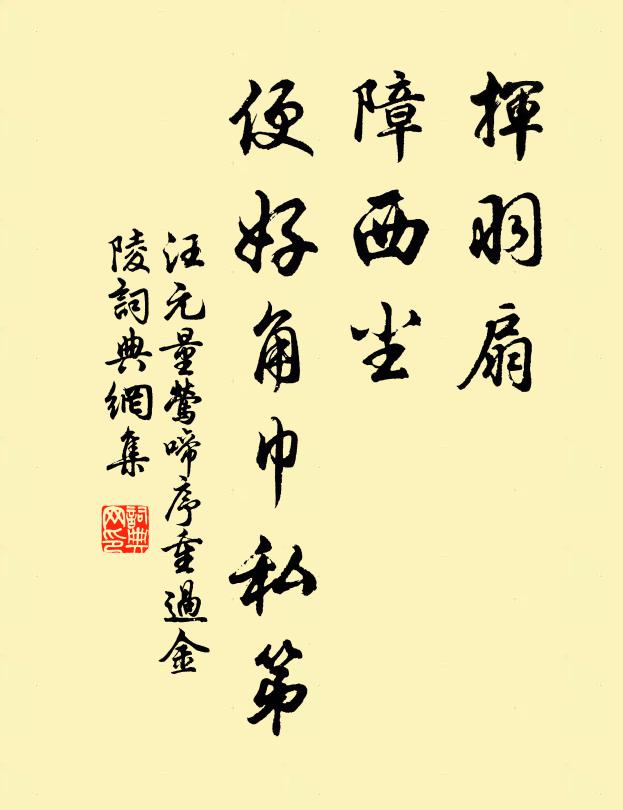 揮羽扇
障西尘
便好角巾私第
汪元量鶯啼序重過金
陵詞典網集
詞典
网印